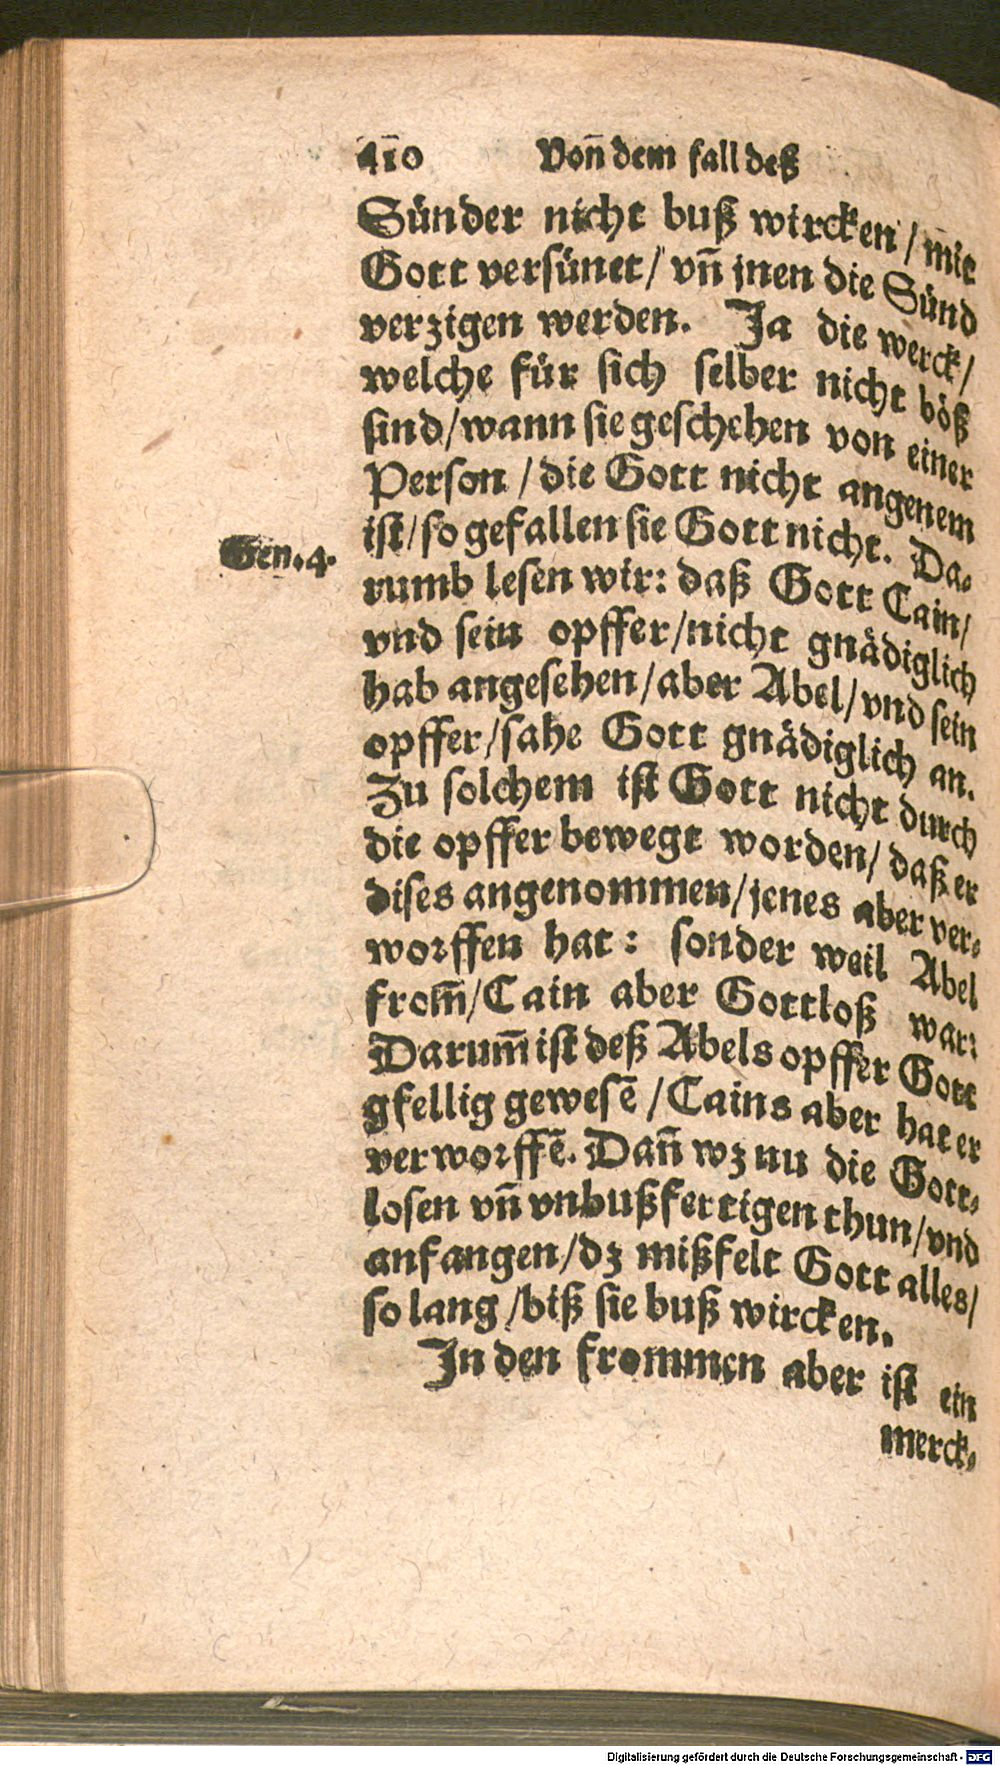 410 Voñ dem fall deß
Sünder nicht buß wircken / mit
Gott versünet / vñ jnen die Sünd
verzigen werden. Ja die werck /
welche für sich selber nicht böß
sind / wann sie geschehen von einer
Person / die Gott nicht angenem
ist / so gefallen sie Gott nicht. Da-
Gen. 4.
rumb lesen wir: daß Gott Cain /
vnd sein opffer / nicht gnädiglich
hab angesehen / aber Abel / vnd sein
opffer / sahe Gott gnädiglich an.
Zu solchem ist Gott nicht durch
die opffer bewegt worden / daß er
dises angenommen / jenes aber ver-
worffen hat: sonder weil Abel
from̃ / Cain aber Gottloß war:
Darum̃ ist deß Abels opffer Gott
gfellig gewesẽ / Cains aber hat er
verworffẽ. Dañ wz nu die Gott-
losen vñ vnbußfertigen thun / vnd
anfangen / dz mißfelt Gott alles /
so lang / biß sie buß wircken.
In den frommen aber ist ein
merck-
Digitalisierung gefördert durch die Deutsche Forschungsgemeinschaft - DFG